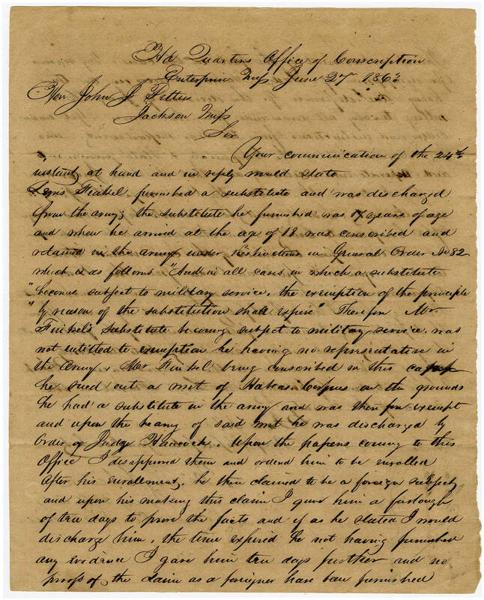 Hd Quarters Office of Conscription
Enterprise Miss June 27 1863
Hon John J Pettus
Jackson Miss
Sir
Your communication of the 24th
instant, at hand and in reply would state
Finkel furnished a substitute and was discharged
from the army, the substitute he furnished was 17 years of age
and when he arrived at the age of 18 was conscribed and
retained in the army under instructions in General Order No 82
which is as follows "And in all cases in which a substitute
"becomes subject to military service, the exemption of the principle
"by reason of the substitution shall expire" Therefore Mr
Finkel's substitute becoming subject to military service, was
not entitled to exemption he having no representative in
the Army, Mr Finkel being conscribed in this
he sued out a writ of Habeas Corpus on the grounds
he had a substitute in the army and was therefore exempt
and upon the hearing of said writ he was discharged by
Order of Judge Hancock. Upon the papers coming to this
Office I disapproved them and ordered him to be enrolled
After his enrollment, he then claimed to be a foreign subject,
and upon his making this claim I gave him a furlough
of ten days to prove the facts and if as he stated I would
discharge him, the time expired he not having furnished
any evidence I gave him ten days further and no
proofs of the claim as a foreigner have been furnished